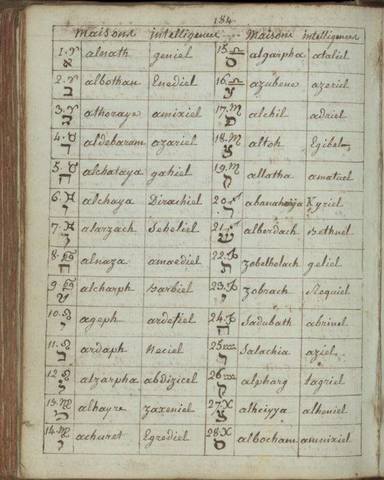 184.
maisons intelligences maisons intelligences
1. ♈ א alnath geniel 15 ♎ algarpha ataliel
2. ♈ ב albothan Enediel 16 ♎ azubene azeriel
3. ♈ ג athoraye amixiel 17. ♏ alchil adriel
4. ♉ ד aldebaram azariel 18. ♏ altob Egibel
5. ♉ ה alchataya gabiel 19. ♏ allatha amatiel
6. ♊ alchaya Dirachiel 20. ♐ abanahaya Kyriel
7. ♊ alarzach Seheliel 21. ♐ alberdach Bethnel
8. ♋ ח alnaza amaediel 22. ♑ zobelholach geliel
9. ♋ ט alcharph Barbiel 23. ♑ zobrach Requiel
10. ♌ י ageph ardefiel 24. Sadabath abrinel
11. ♌ ardaph Neciel 25 ♒ Salachia aziel
12. ♌ alzarpha abdizicel 26 ♒ alpharg tagriel
13. ♍ alhayre zazeniel 27. ♓ alheiyya alheniel
14. ♍ achuret Egrediel 28. ♓ albocham amnixiel